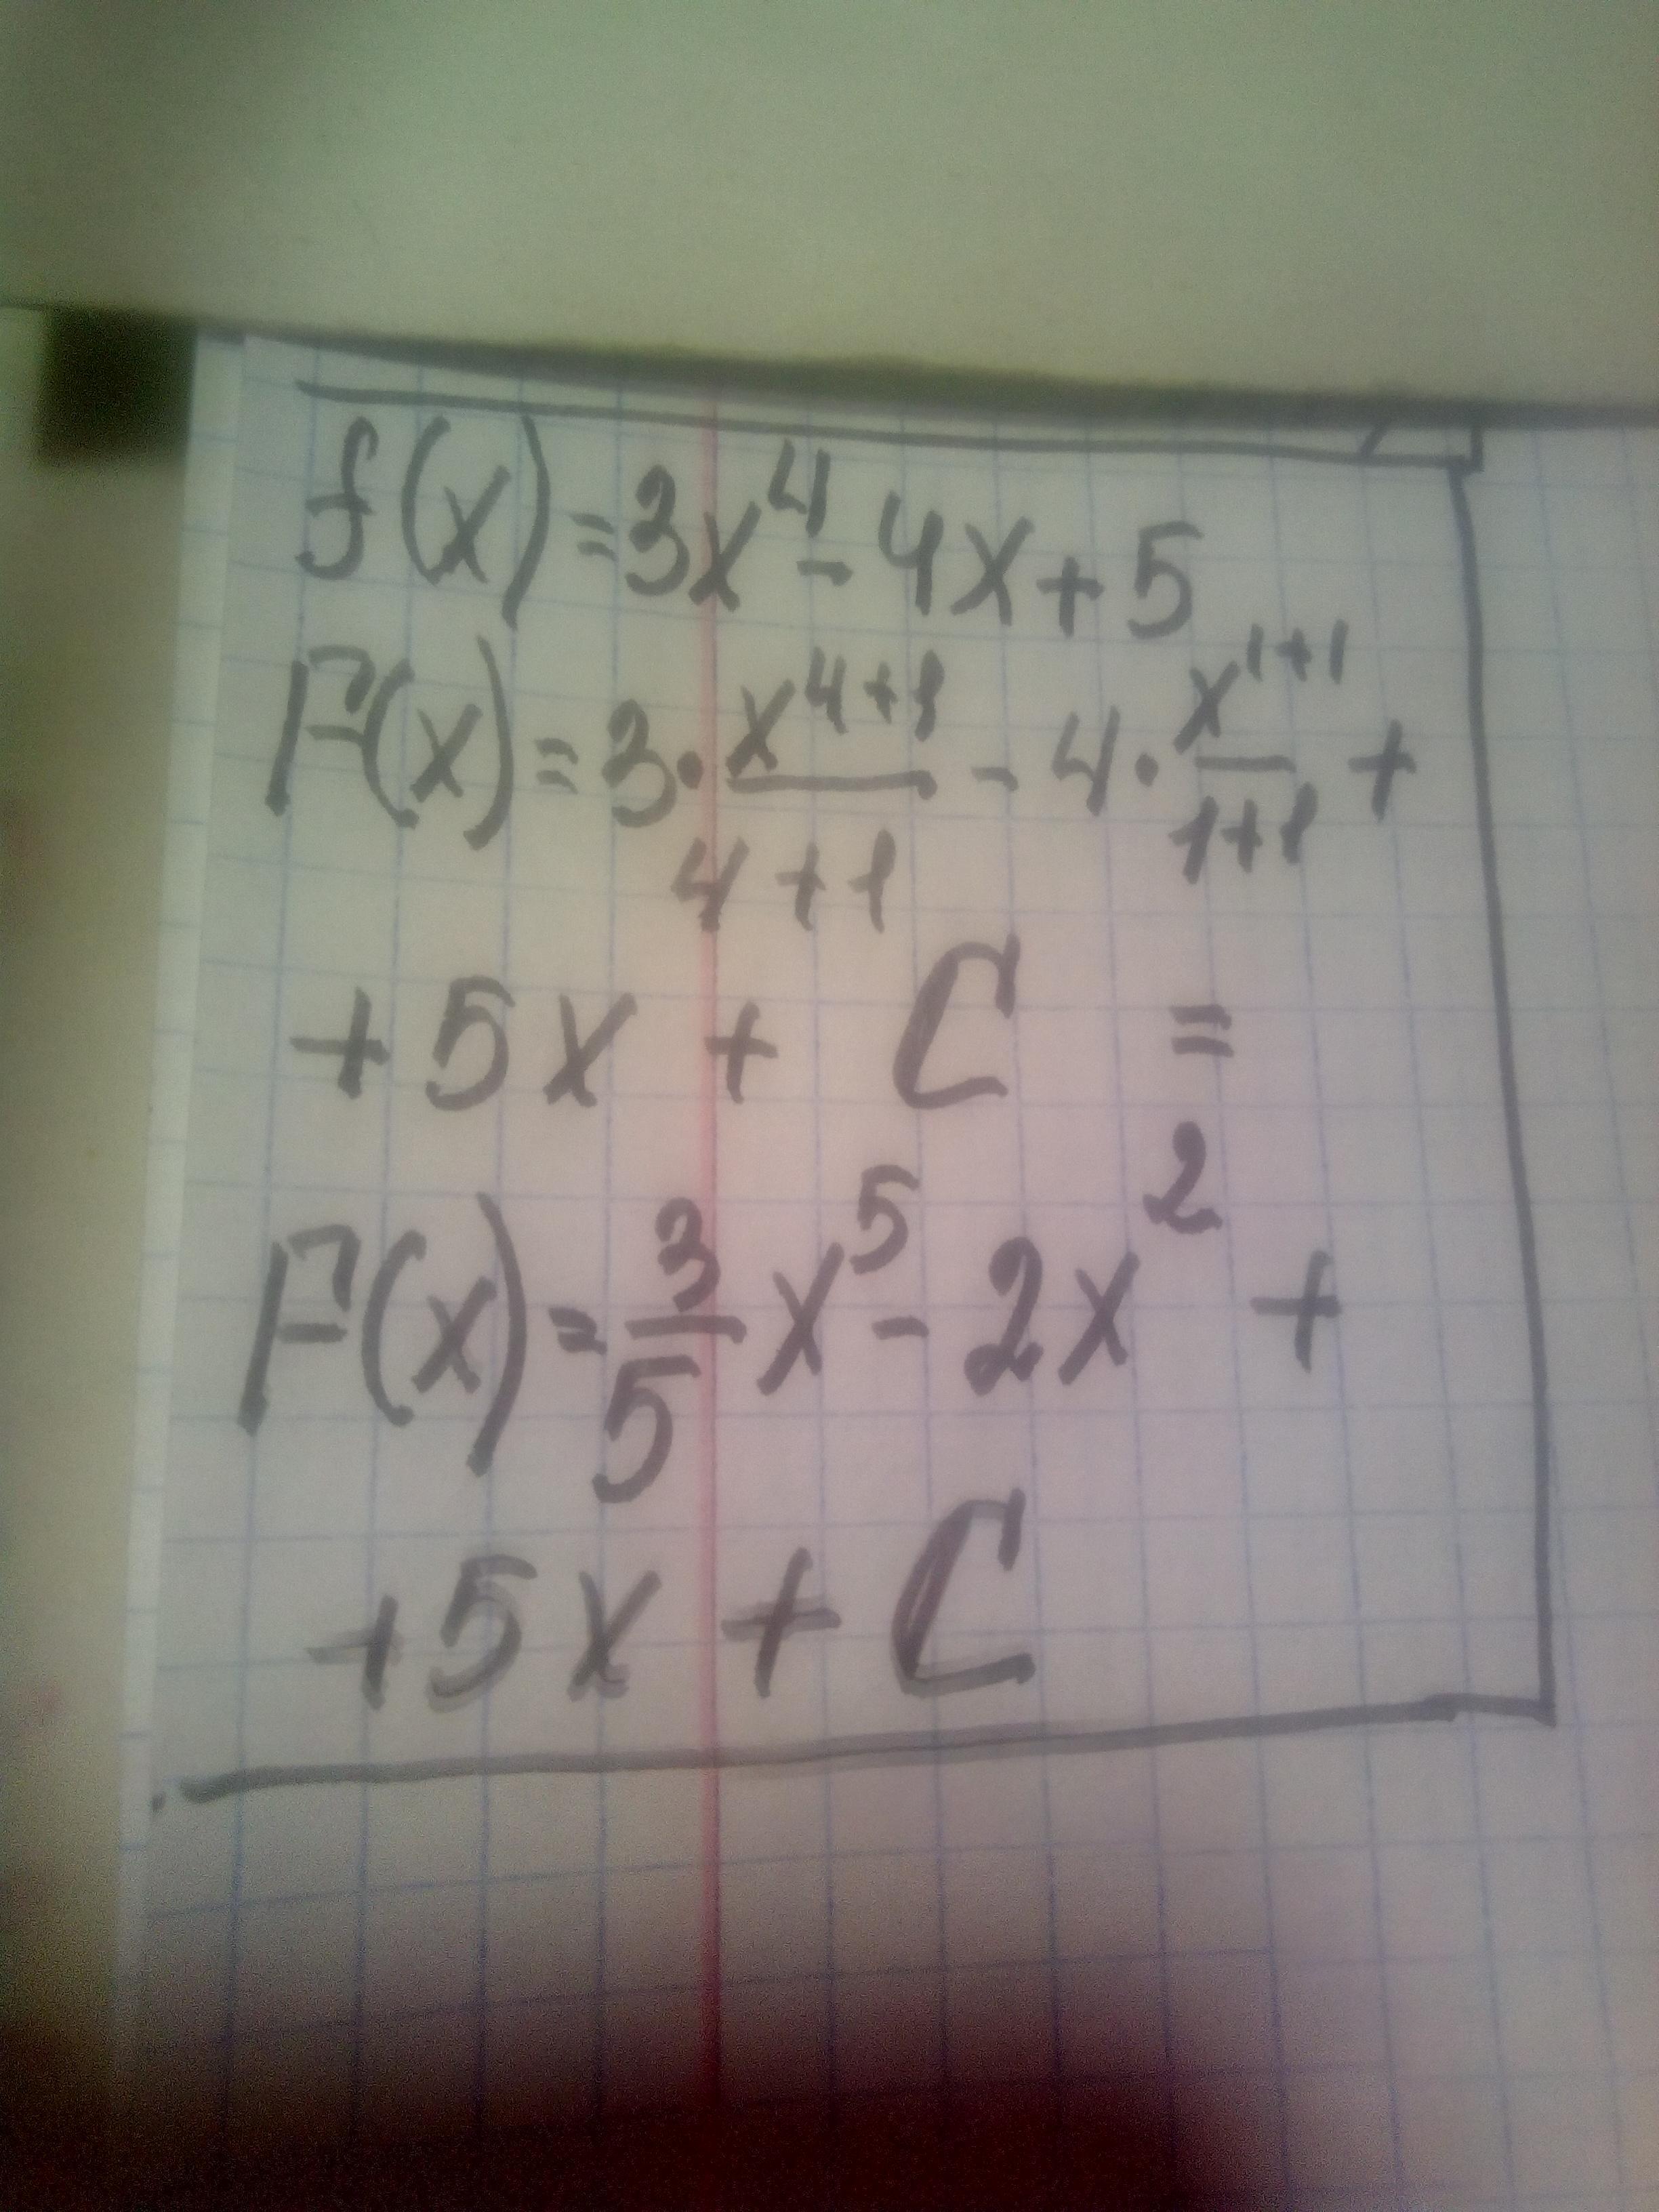 f(x) = 3x⁴ - 4x + 5
F(x) = 3 · x⁴⁺¹/4+1 - 4 · x¹⁺¹/1+1 +
+ 5x + C =
F(x) = 3/5 x⁵ - 2x² +
+ 5x + C